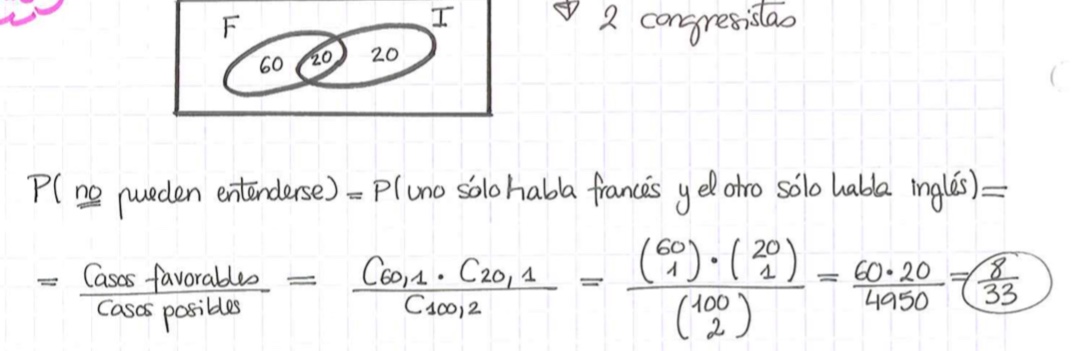 F I
60 20 20
2 congresistas
P( no pueden entenderse) = P(uno sólo habla francés y el otro sólo habla inglés) =
= Casos favorables / Casos posibles = C60,1 · C20,1 / C100,2 = (60 1) · (20 1) / (100 2) = 60·20 / 4950 = 8/33